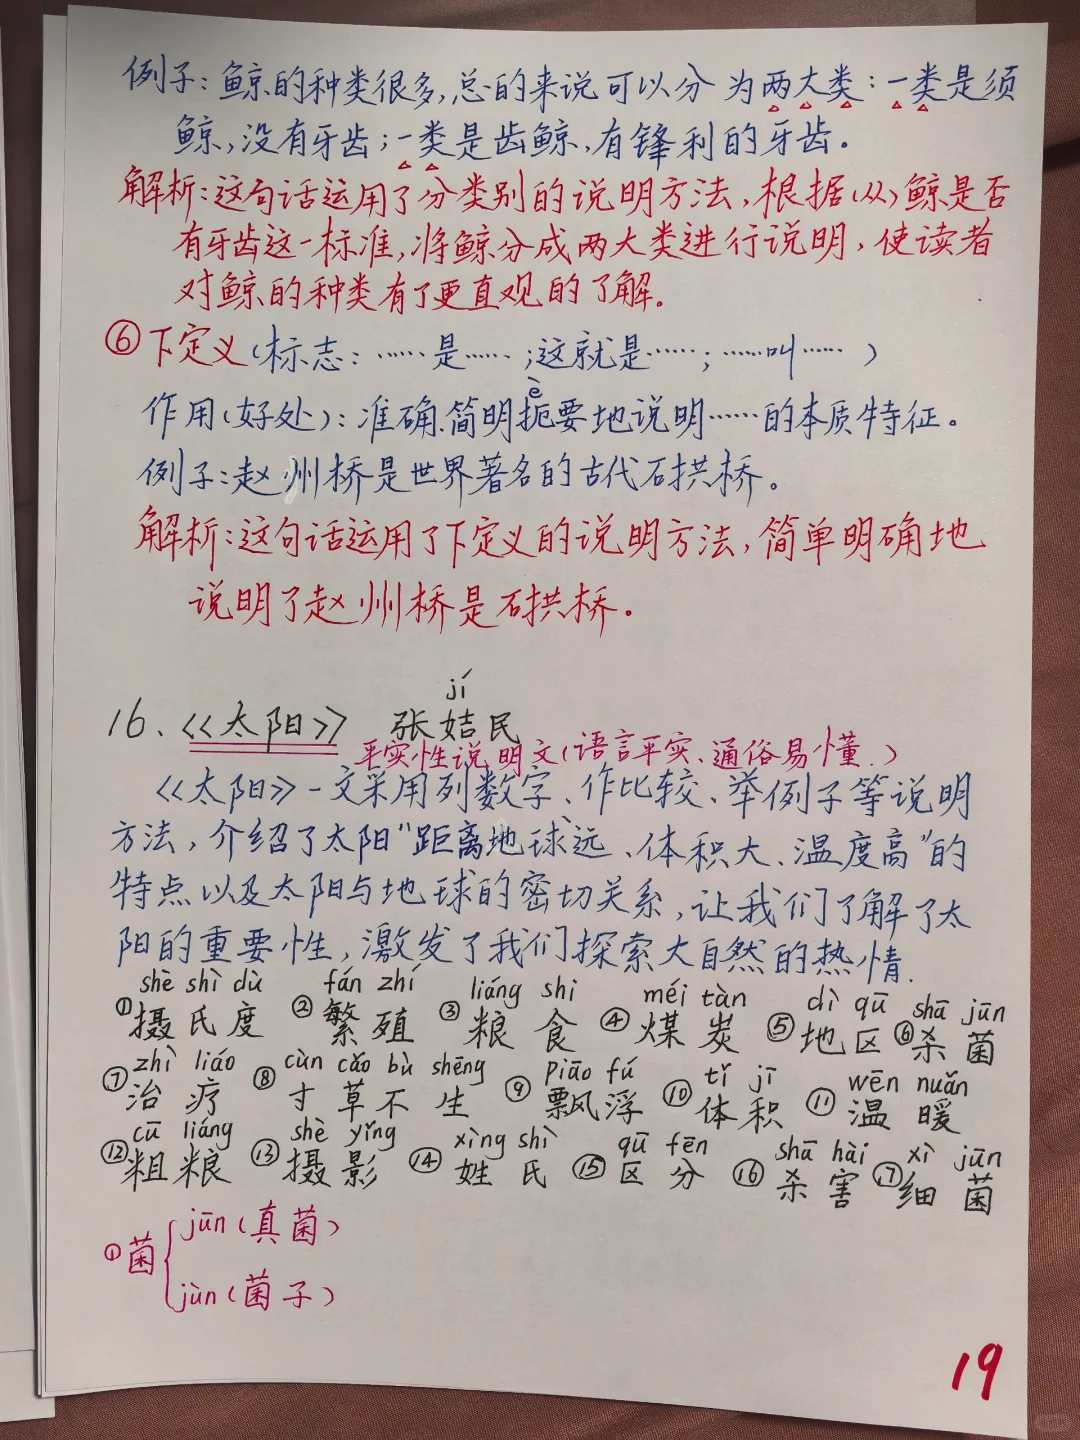 例子：鲸的种类很多，总的来说可以分为两大类：一类是须
鲸，没有牙齿；一类是齿鲸，有锋利的牙齿。
解析：这句话运用了分类别的说明方法，根据（从）鲸是否
有牙齿这一标准，将鲸分成两大类进行说明，使读者
对鲸的种类有了更直观的了解。
⑥下定义（标志：……是……；这就是……；……叫……）
è
作用（好处）：准确、简明扼要地说明……的本质特征。
例子：赵州桥是世界著名的古代石拱桥。
解析：这句话运用了下定义的说明方法，简单明确地
说明了赵州桥是石拱桥。
jí
16、《太阳》 张姞民
平实性说明文（语言平实、通俗易懂．）
《太阳》一文采用列数字、作比较、举例子等说明
方法，介绍了太阳“距离地球远、体积大、温度高”的
特点以及太阳与地球的密切关系，让我们了解了太
阳的重要性，激发了我们探索大自然的热情．
shè shì dù fán zhí liáng shi méi tàn dì qū shā jūn
①摄氏度 ②繁殖 ③粮食 ④煤炭 ⑤地区 ⑥杀菌
zhì liáo cùn cǎo bù shēng piāo fú tǐ jī wēn nuǎn
⑦治疗 ⑧寸草不生 ⑨飘浮 ⑩体积 ⑪温暖
cū liáng shè yǐng xìng shì qū fēn shā hài xì jūn
⑫粗粮 ⑬摄影 ⑭姓氏 ⑮区分 ⑯杀害 ⑰细菌
jūn（真菌）
①菌
jùn（菌子）
19